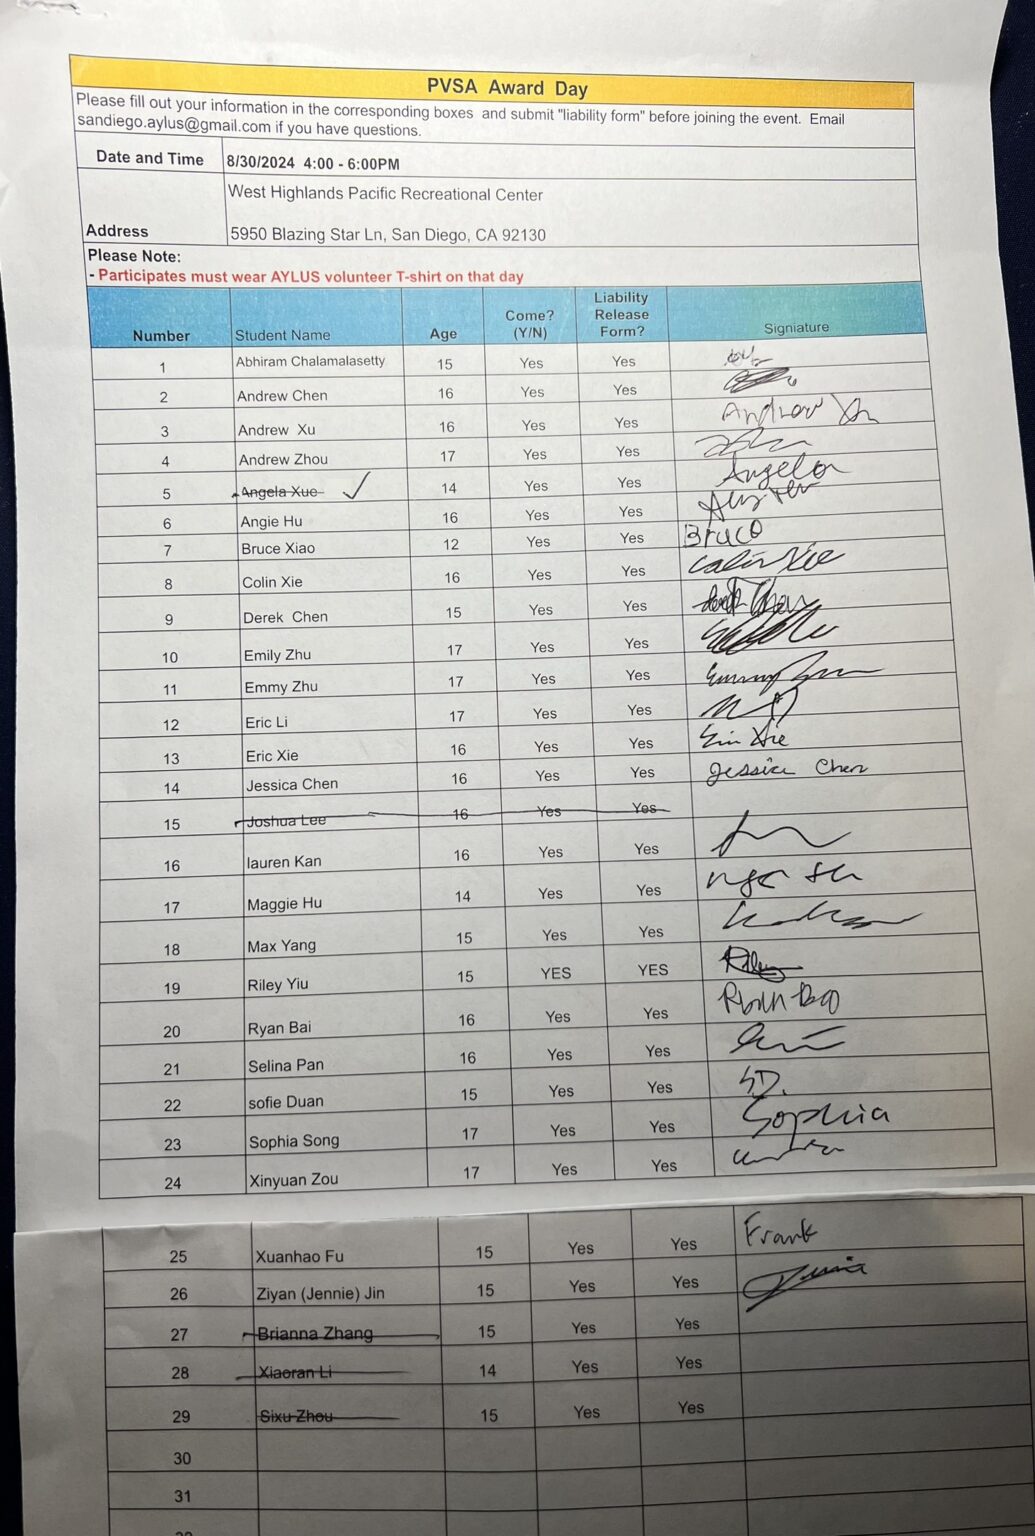 PVSA Award Day
Please fill out your information in the corresponding boxes and submit "liability form" before joining the event. Email
sandiego.aylus@gmail.com if you have questions.
Date and Time 8/30/2024 4:00 - 6:00PM
West Highlands Pacific Recreational Center
Address 5950 Blazing Star Ln, San Diego, CA 92130
Please Note:
- Participates must wear AYLUS volunteer T-shirt on that day
Number Student Name Age Come? (Y/N) Liability Release Form? Signiature
1 Abhiram Chalamalasetty 15 Yes Yes
2 Andrew Chen 16 Yes Yes
3 Andrew Xu 16 Yes Yes Andrew Xu
4 Andrew Zhou 17 Yes Yes
5 Angela Xue 14 Yes Yes Angela
6 Angie Hu 16 Yes Yes
7 Bruce Xiao 12 Yes Yes Bruce
8 Colin Xie 16 Yes Yes Colin Xie
9 Derek Chen 15 Yes Yes Derek Chen
10 Emily Zhu 17 Yes Yes
11 Emmy Zhu 17 Yes Yes Emmy Zhu
12 Eric Li 17 Yes Yes
13 Eric Xie 16 Yes Yes Eric Xie
14 Jessica Chen 16 Yes Yes Jessica Chen
15 Joshua Lee 16 Yes Yes
16 lauren Kan 16 Yes Yes
17 Maggie Hu 14 Yes Yes
18 Max Yang 15 Yes Yes
19 Riley Yiu 15 YES YES Riley
20 Ryan Bai 16 Yes Yes Ryan Bai
21 Selina Pan 16 Yes Yes
22 sofie Duan 15 Yes Yes S.D.
23 Sophia Song 17 Yes Yes Sophia
24 Xinyuan Zou 17 Yes Yes
25 Xuanhao Fu 15 Yes Yes Frank
26 Ziyan (Jennie) Jin 15 Yes Yes Jennie
27 Brianna Zhang 15 Yes Yes
28 Xiaoran Li 14 Yes Yes
29 Sixu Zhou 15 Yes Yes
30
31